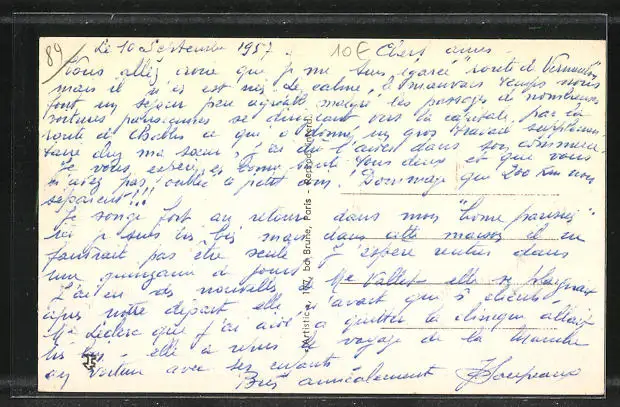 89
Le 10 Septembre 1957. 10€ Chers amis
Vous allez croire que je me suis "égarée" route de Vermenton
mais il n'en est rien. Le calme, le mauvais temps nous
font un séjour peu agréable malgré les passages de nombreuses
voitures parisiennes se dirigeant vers la capitale par la
route de Chablis ce qui a donné un gros travail supplémen-
taire chez ma sœur, j'ai dû l'aider dans son commerce.
Je vous espère en bonne santé tous deux et que vous
n'avez pas oublié "a petit ami". Dommage que 200 Km nous
séparent!!!
Je songe fort au retour dans mon "home parisien"
ici je suis très bien mais dans cette maison il ne
faudrait pas être seule j'espère rentrer dans
une quinzaine de jours
J'ai eu des nouvelles Me Vallet elle se plaignait
après notre départ elle n'avait que 5 clients
Me Leclerc que j'ai aidé à quitter la clinique allait
très bien, elle a repris le voyage de la Manche
en voiture avec ses enfants
Bien amicalement
«Artistic», 187, bd Brune, Paris
Reprod. interd.